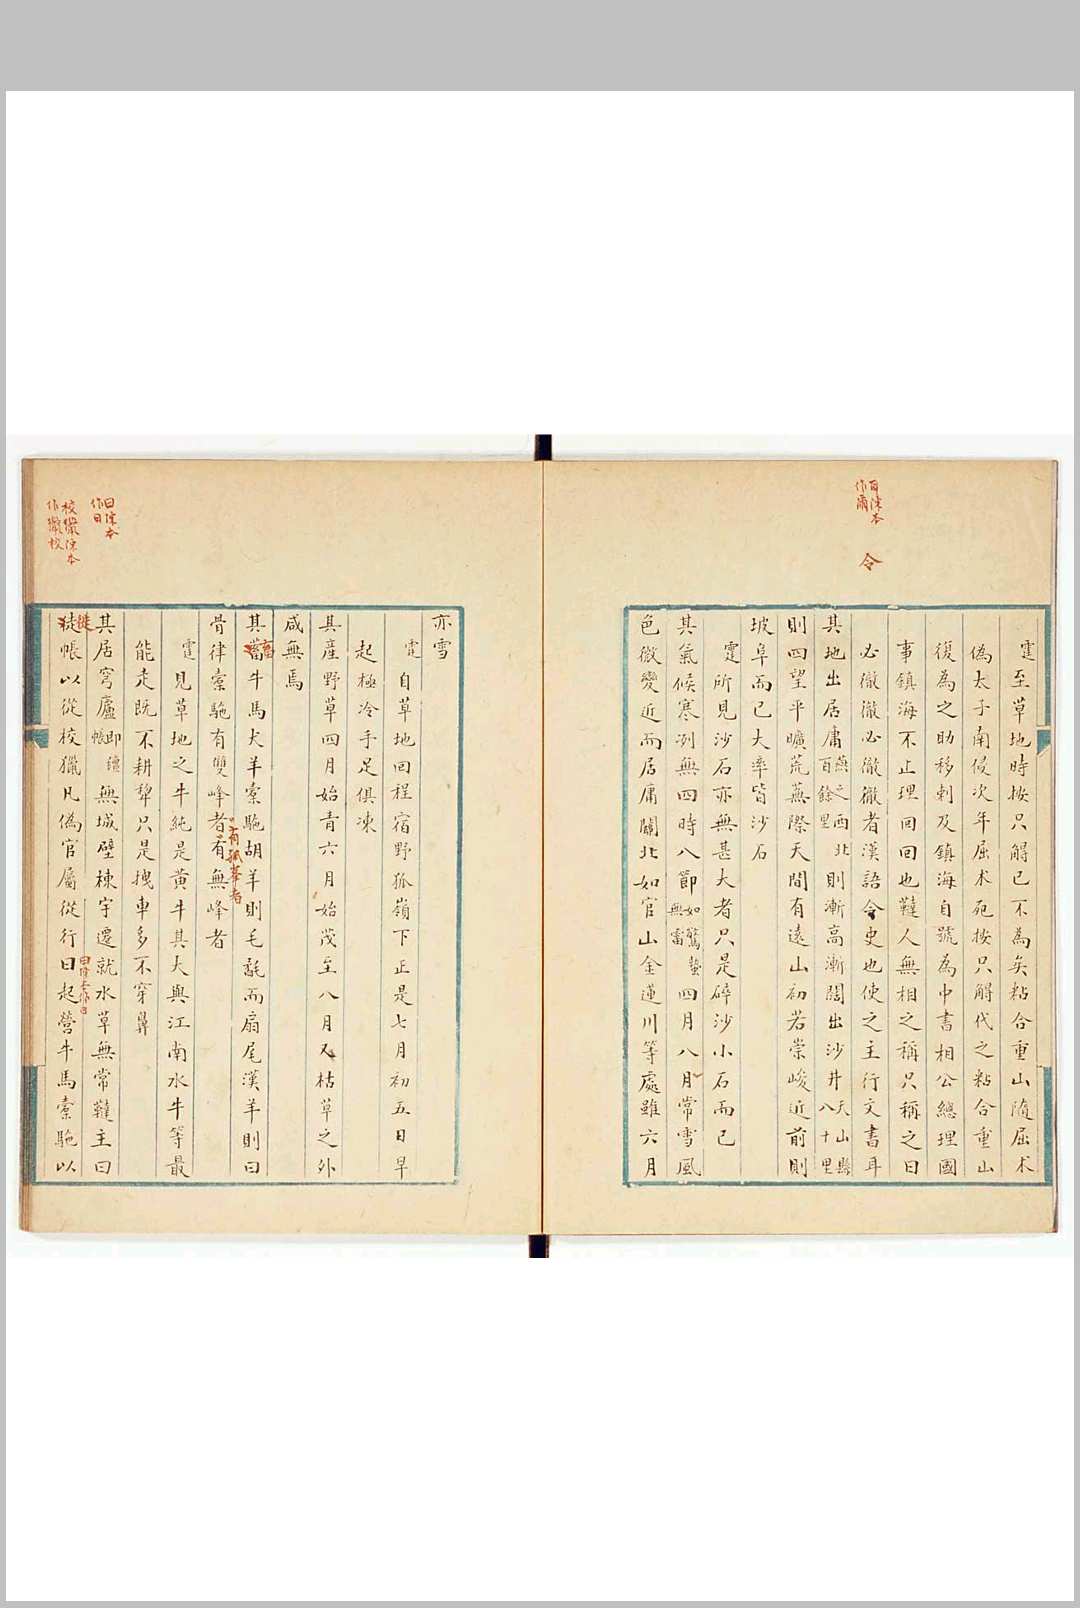 百陳本
作爾
令
霆至草地時按只解已不為矣粘合重山隨屈朮
偽太子南侵次年屈朮死按只解代之粘合重山
復為之助移剌及鎮海自號為中書相公總理國
事鎮海不止理回回也韃人無相之稱只稱之曰
必徹徹必徹徹者漢語令史也使之主行文書耳
其地出居庸燕之西北百餘里則漸高漸闊出沙井天山縣八十里
則四望平曠荒蕪際天間有遠山初若崇峻近前則
坡阜而已大率皆沙石
霆所見沙石亦無甚大者只是碎沙小石而已
其氣候寒冽無四時八節如驚蟄無雷四月八月常雪風
色微變近而居庸關北如官山金蓮川等處雖六月
亦雪
霆自草地回程宿野狐嶺下正是七月初五日早
起極冷手足俱凍
其產野草四月始青六月始茂至八月又枯草之外
咸無焉
其畜牛馬犬羊橐駞胡羊則毛氄而扇尾漢羊則曰
骨律橐駞有雙峰者有孤峯者有無峰者
霆見草地之牛純是黃牛其大與江南水牛等最
能走既不耕犂只是拽車多不穿鼻
曰陳本
作日
其居穹廬即氊帳無城壁棟宇遷就水草無常韃主曰
校獵陳本
作獵校
徙帳以從校獵凡偽官屬從行曰起營牛馬橐駞以